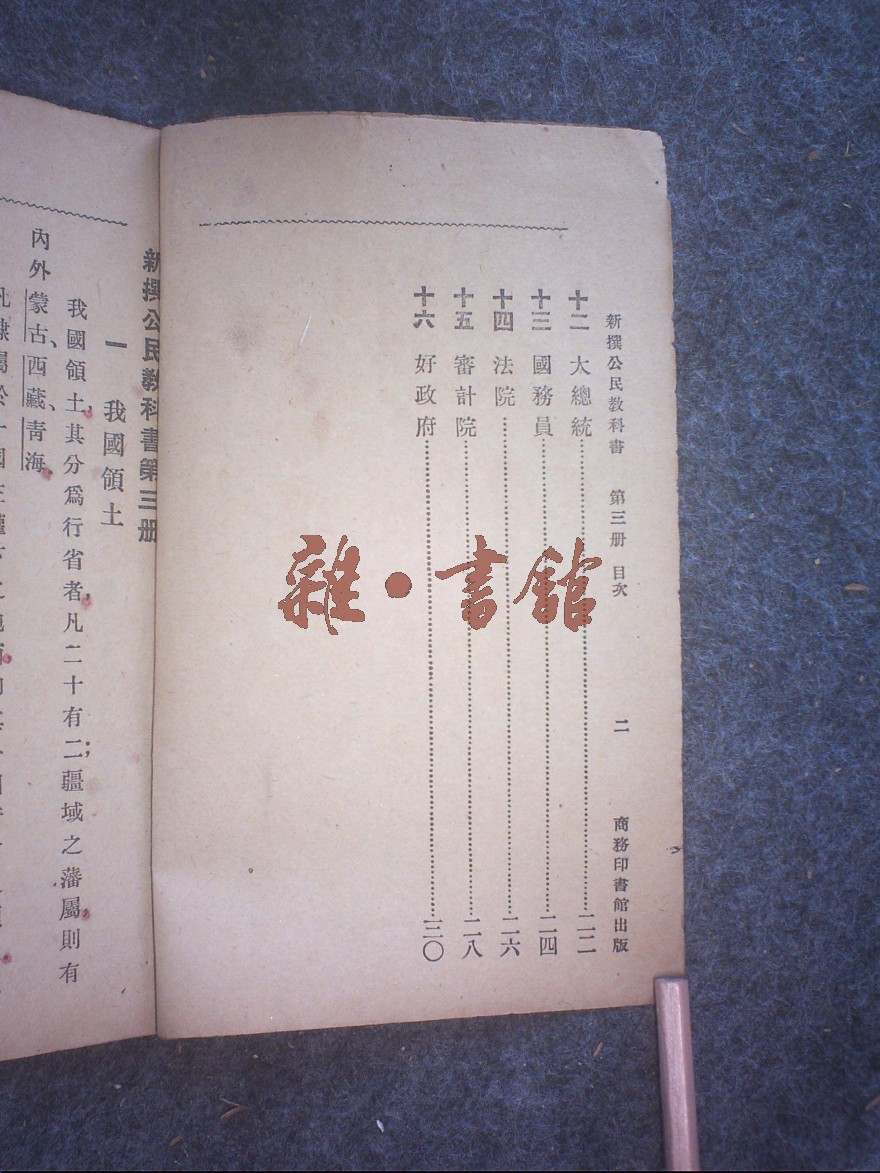 新撰公民教科書 第三册 目次 二 商務印書館出版
十二 大總統 二二
十三 國務員 二四
十四 法院 二六
十五 審計院 二八
十六 好政府 三〇
雜·書館
新撰公民教科書第三册
一 我國領土
我國領土,其分爲行省者,凡二十有二;疆域之藩屬,則有
內外蒙古、西藏、青海。